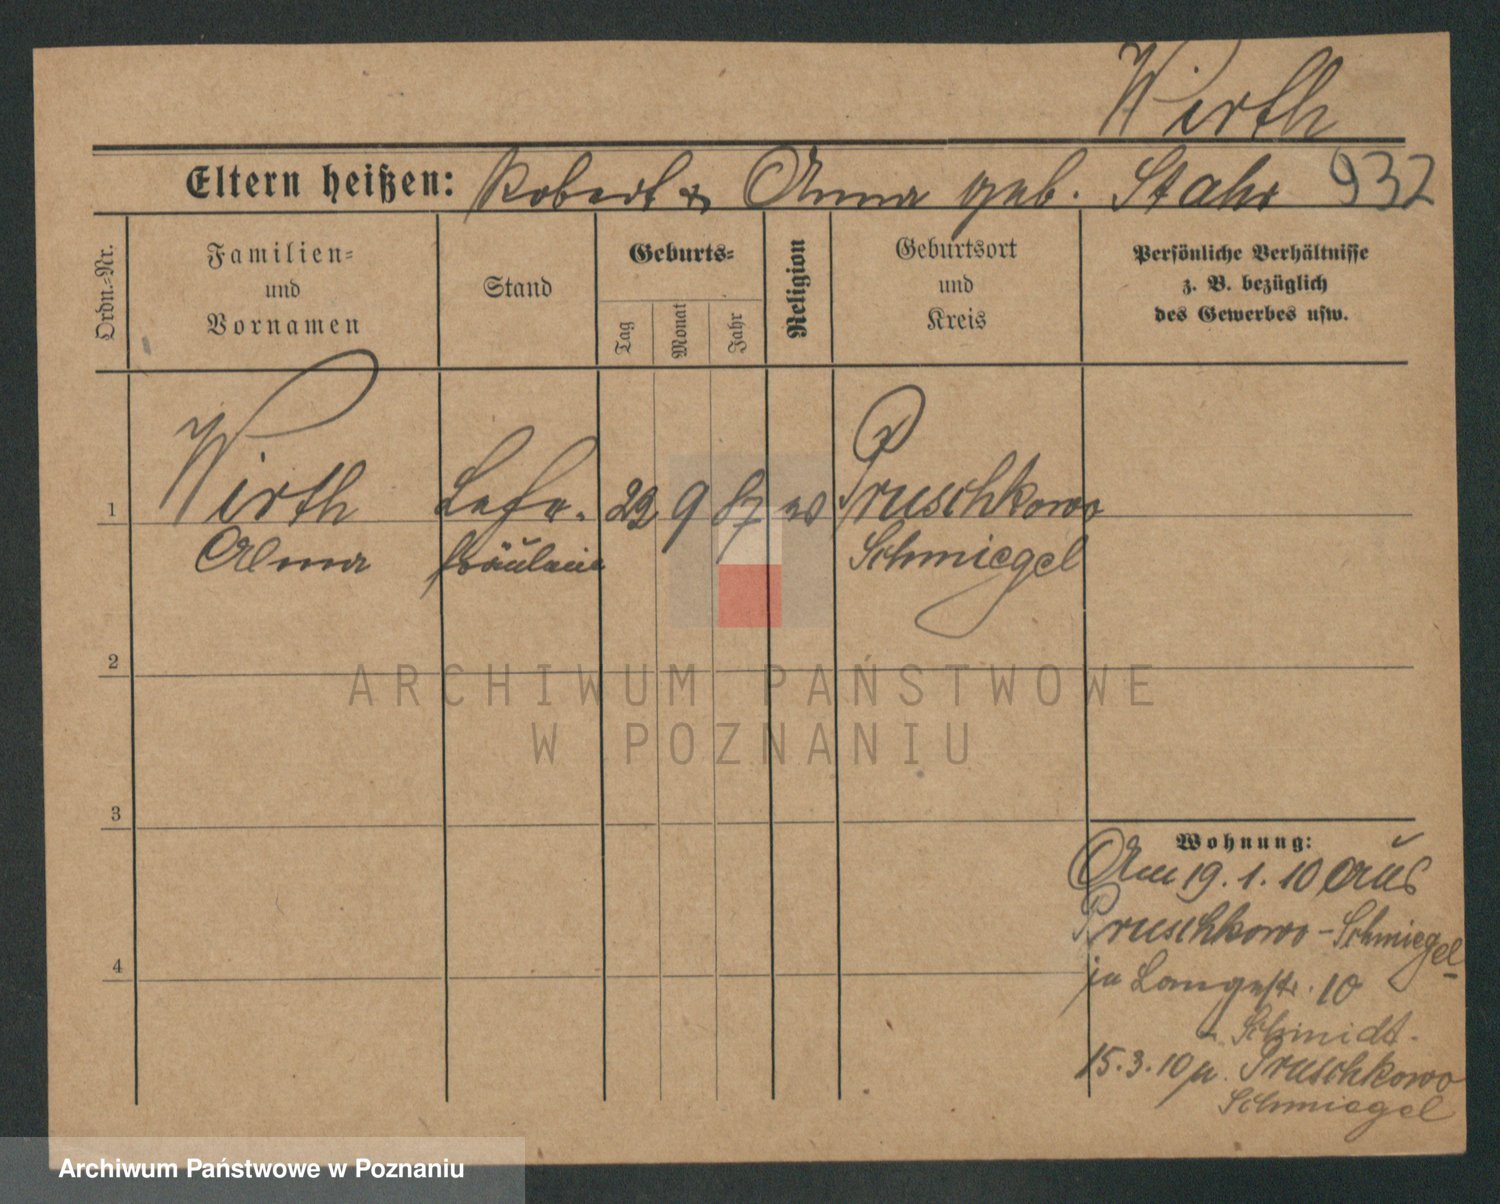 Wirth
Eltern heißen: Robert & Anna geb. Stahr 932
Ordn.-Nr.
Familien-
und
Vornamen
Stand
Geburts-
Tag
Monat
Jahr
Religion
Geburtsort
und
Kreis
Persönliche Verhältnisse
z. B. bezüglich
des Gewerbes usw.
1 Wirth Lehr- 22 9 87 ev Pruschkowo
Alma fräulein Schmiegel
2
3
4
Wohnung:
Am 19.1.10 aus
Pruschkowo-Schmiegel
in Langestr. 10
- Schmidt -
15.3.10 n. Pruschkowo
Schmiegel
ARCHIWUM PAŃSTWOWE
W POZNANIU
Archiwum Państwowe w Poznaniu